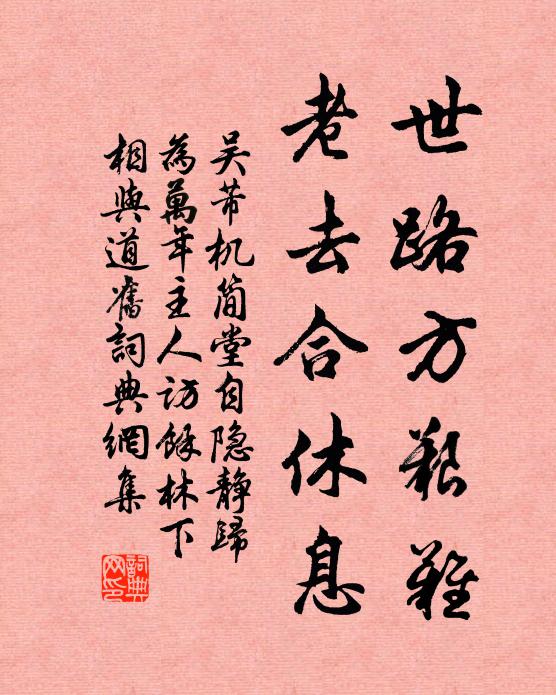 世路方艱難
老去合休息
吴芾机简堂自隐静歸
為萬年主人访餘林下
相與道舊詞典網集
詞典
网印